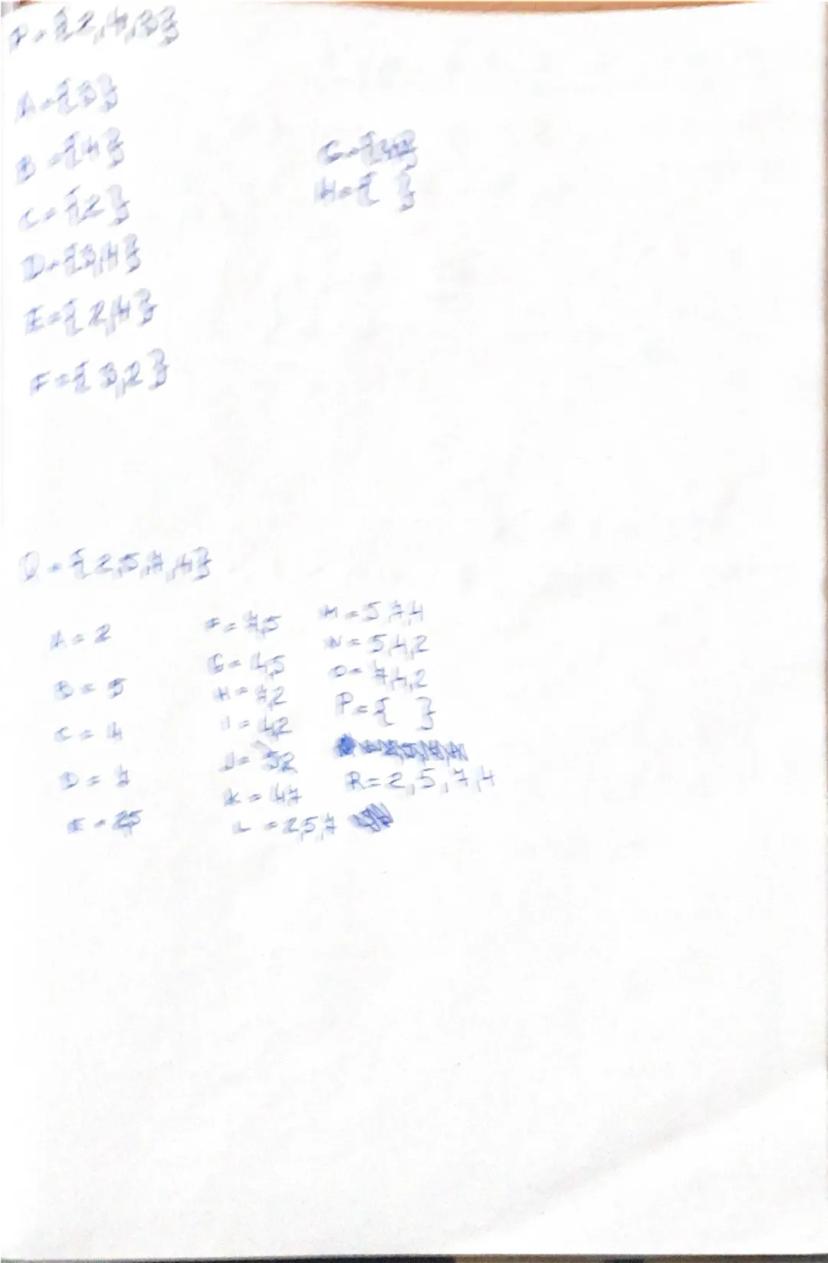 P={2,4,3}
A={3}
B={4}
C={2}
D={3,4}
E={2,4}
F={3,2}
H={ }
Q={2,5,7,4}
A=2
B=5
C=4
D=7
E=2,5
F=7,5
G=4,5
H=7,2
I=4,2
J=5,2
K=47
L=2,5,7
M=5,7,4
N=5,4,2
O=7,4,2
P={ }
R=2,5,7,4